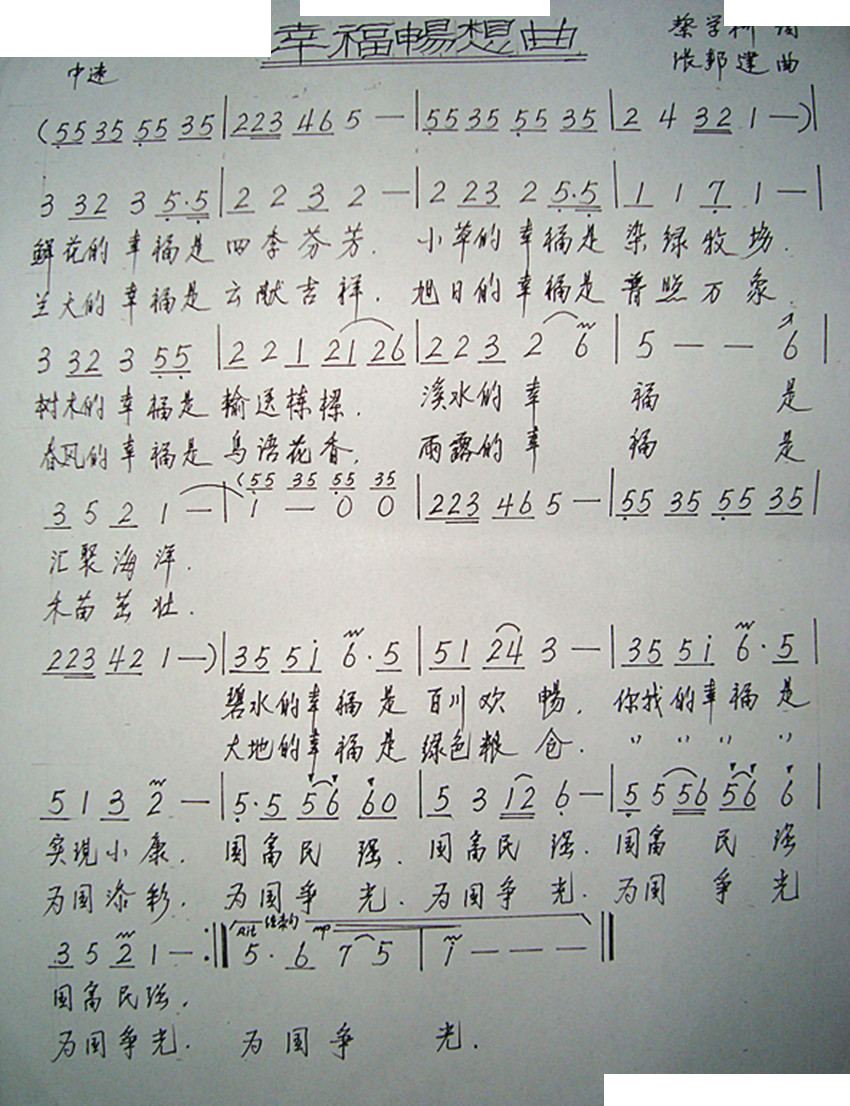 幸福暢想曲
中速
张邦建 曲
(55 35 55 35 | 223 46 5 — | 55 35 55 35 | 2 4 32 1 —)|
3 32 3 5·5 | 2 2 3 2 — | 2 23 2 5·5 | 1 1 7 1 — |
鲜花的幸福是四季芬芳. 小草的幸福是染绿牧场.
兰天的幸福是云献吉祥. 旭日的幸福是普照万象.
3 32 3 55 | 2 2 1 21 26 | 2 2 3 2 6 | 5 — — 6 |
树木的幸福是输送栋樑. 溪水的幸福是
春风的幸福是鸟语花香, 雨露的幸福是
(55 35 55 35
3 5 2 1 — | 1 — 0 0 | 223 46 5 — | 55 35 55 35 |
汇聚海洋.
禾苗茁壮.
223 42 1 —)| 35 5i 6·5 | 51 24 3 — | 35 5i 6·5 |
碧水的幸福是百川欢畅, 你找的幸福是
大地的幸福是绿色粮仓. " " " "
5 1 3 2 — | 5·5 56 60 | 5 3 12 6 — | 5 5 56 56 6 |
实现小康. 国富民强. 国富民强. 国富民强
为国添彩. 为国争光. 为国争光. 为国争光
Rit 结束句 mp
3 5 2 1 — :|| 5· 6 7 5 | i — — — ||
国富民强.
为国争光. 为国争光.